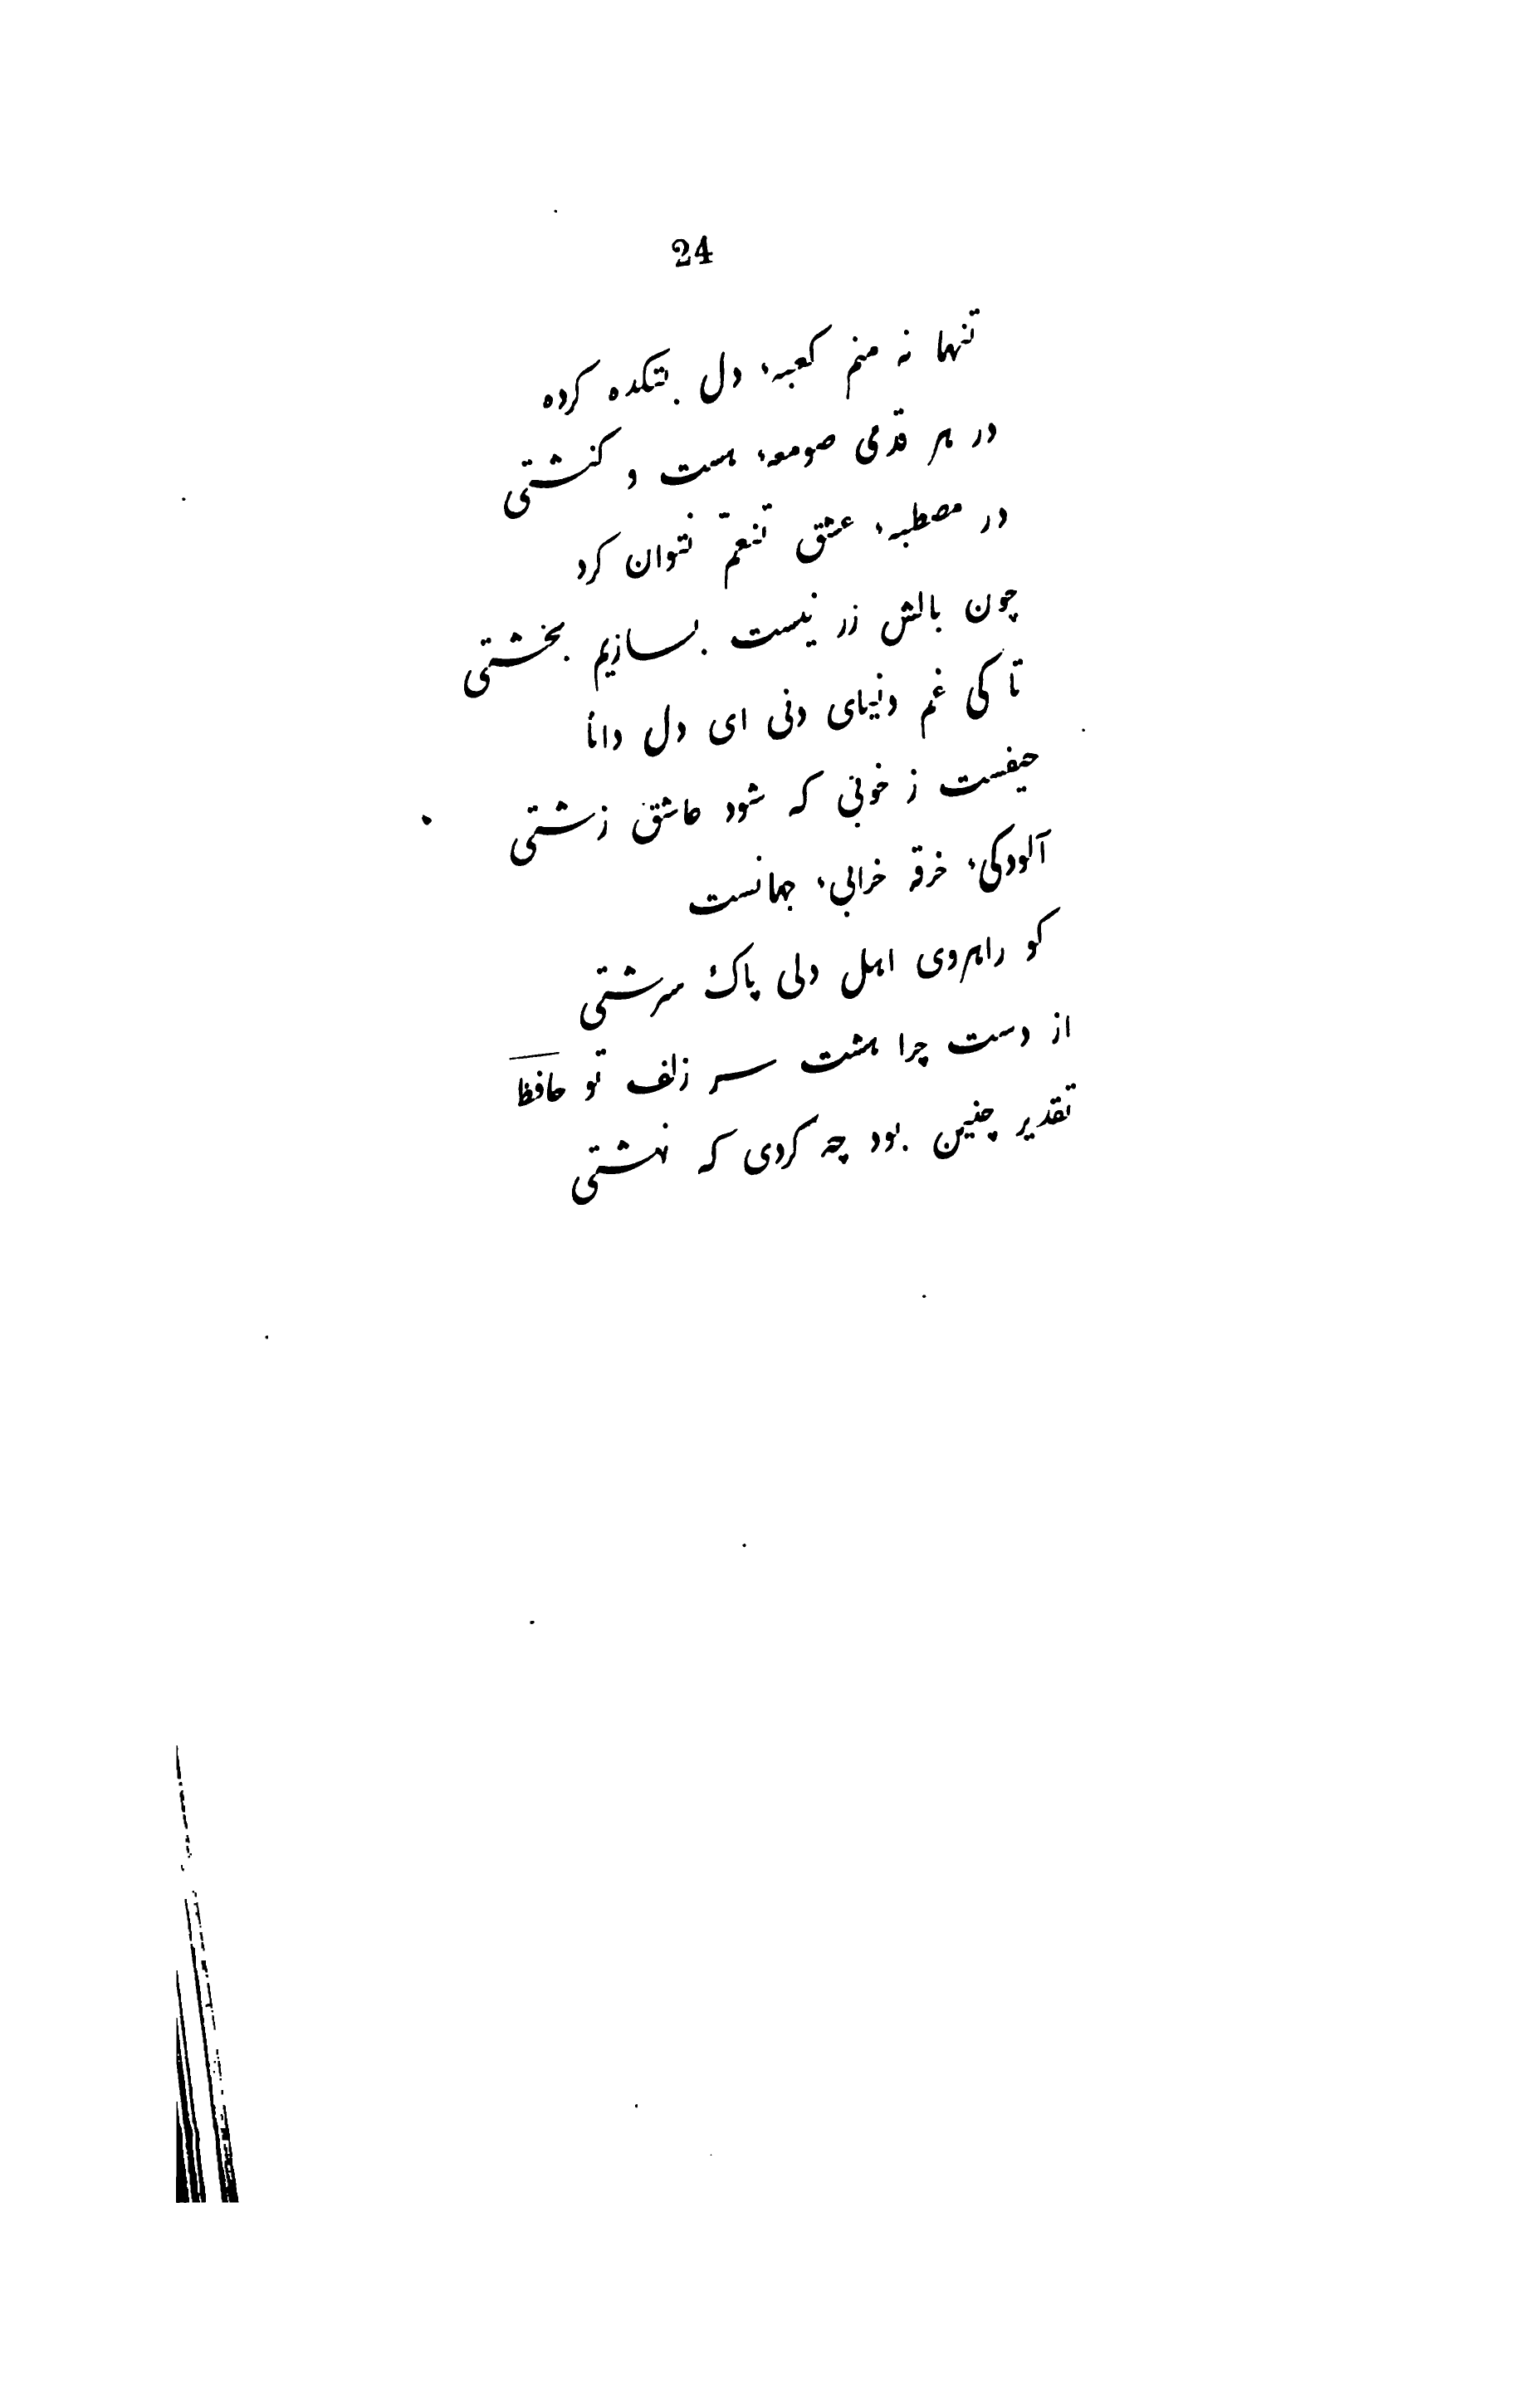 24
تنهـا نه منم کعبهٔ دل بتکده کرده
در هر قدمی صومعهٔ هست و کنشتی
در مصطبهٔ عشق تنعّم نتوان کرد
چون بالش زر نیست بسازیم بخشتی
تا کی غم دنیای دنی ای دل دانا
حیفست ز خوبی که شود عاشق زشتی
آلودکیٔ خرقه خرابیٔ جهانست
کو راهروی اهل دلی پاک سرشتی
از دست چرا هشت سر زلف تو حافظ
تقدیر چنین بود چه کردی که نهشتی